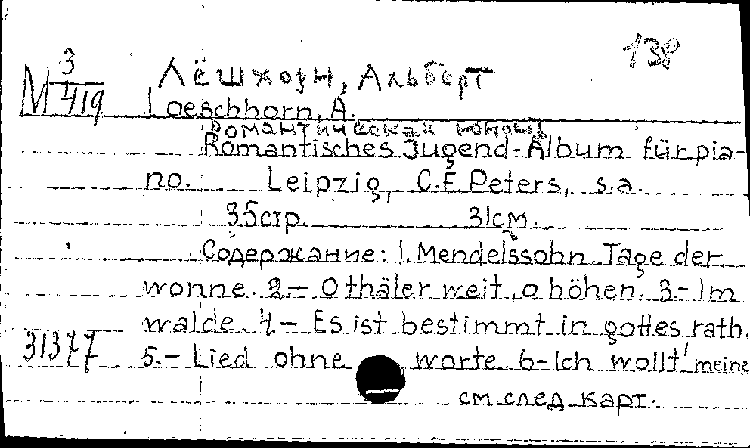 138
М 3/419
Лёшхорн, Альберт
Loeschhorn, A.
Романтический
Romantisches Jugend-Album für pia-
no. Leipzig, C.F. Peters, s.a.
35 стр. 31 см.
Содержание: 1. Mendelssohn Tage der
wonne. 2.- O thäler weit, o höhen. 3- Im
walde. 4- Es ist bestimmt in gottes rath.
31377
5.- Lied ohne worte. 6- Ich wollt' meine
см след карт.